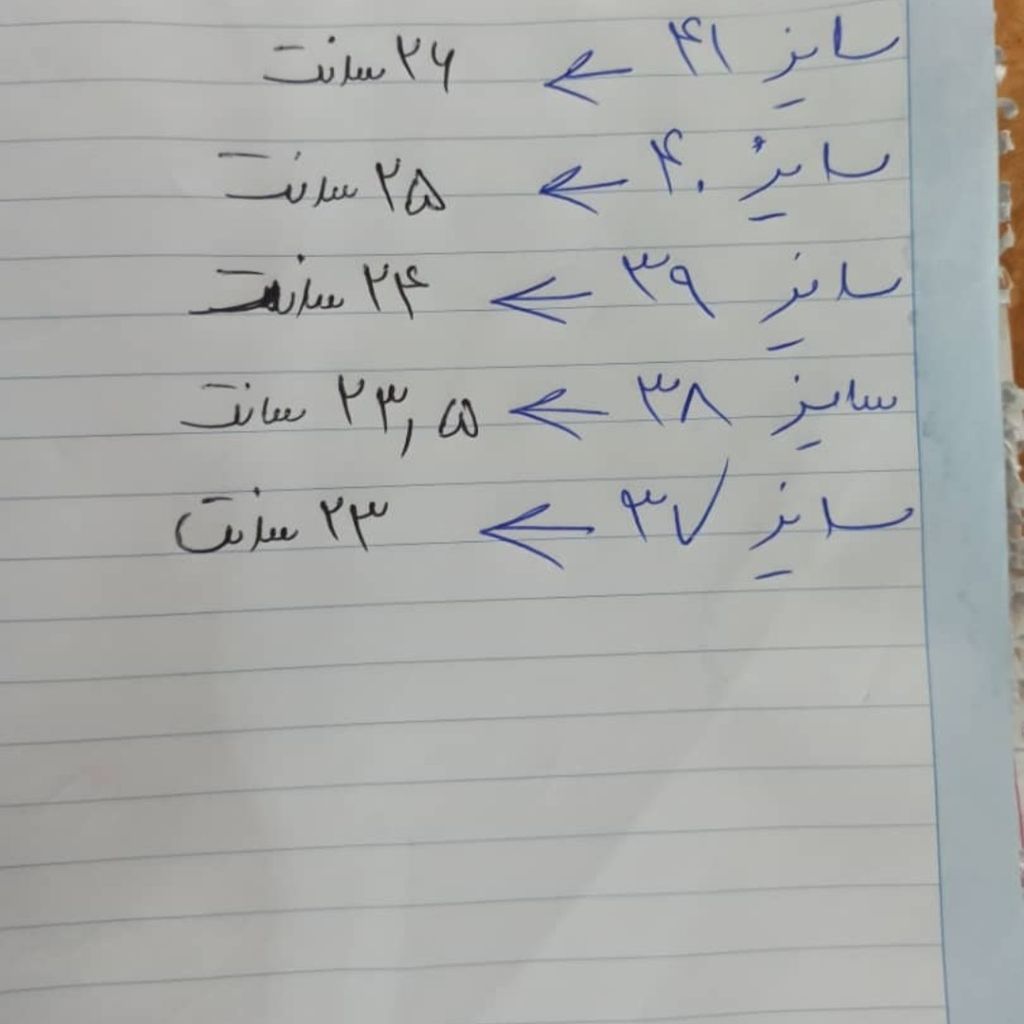 سایز ۴۱ ← ۲۶ سانت
سایز ۴۰ ← ۲۵ سانت
سایز ۳۹ ← ۲۴ سانت
سایز ۳۸ ← ۲۳,۵ سانت
سایز ۳۷ ← ۲۳ سانت